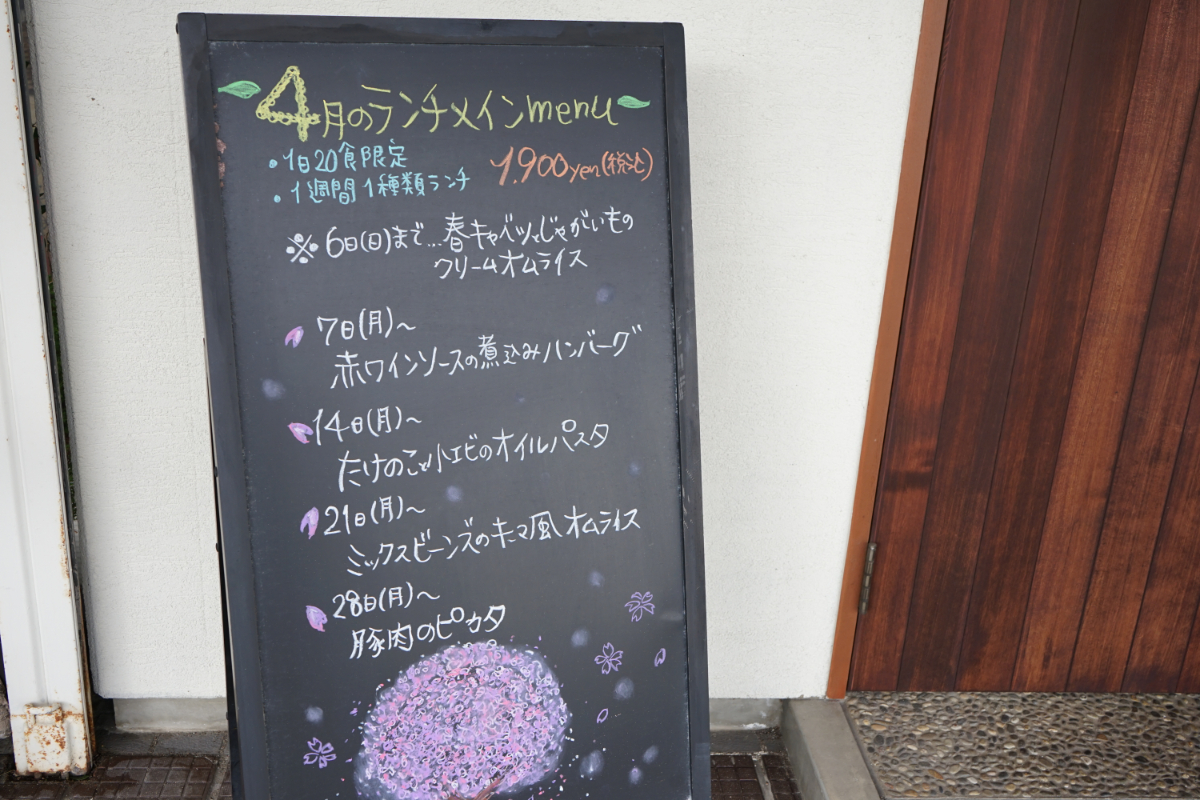 4月のランチメインmenu
・1日20食限定
・1週間1種類ランチ
1.900yen(税込)
※6日(日)まで…春キャベツとじゃがいもの
クリームオムライス
7日(月)〜
赤ワインソースの煮込みハンバーグ
14日(月)〜
たけのこと小エビのオイルパスタ
21日(月)〜
ミックスビーンズのキーマ風オムライス
28日(月)〜
豚肉のピカタ